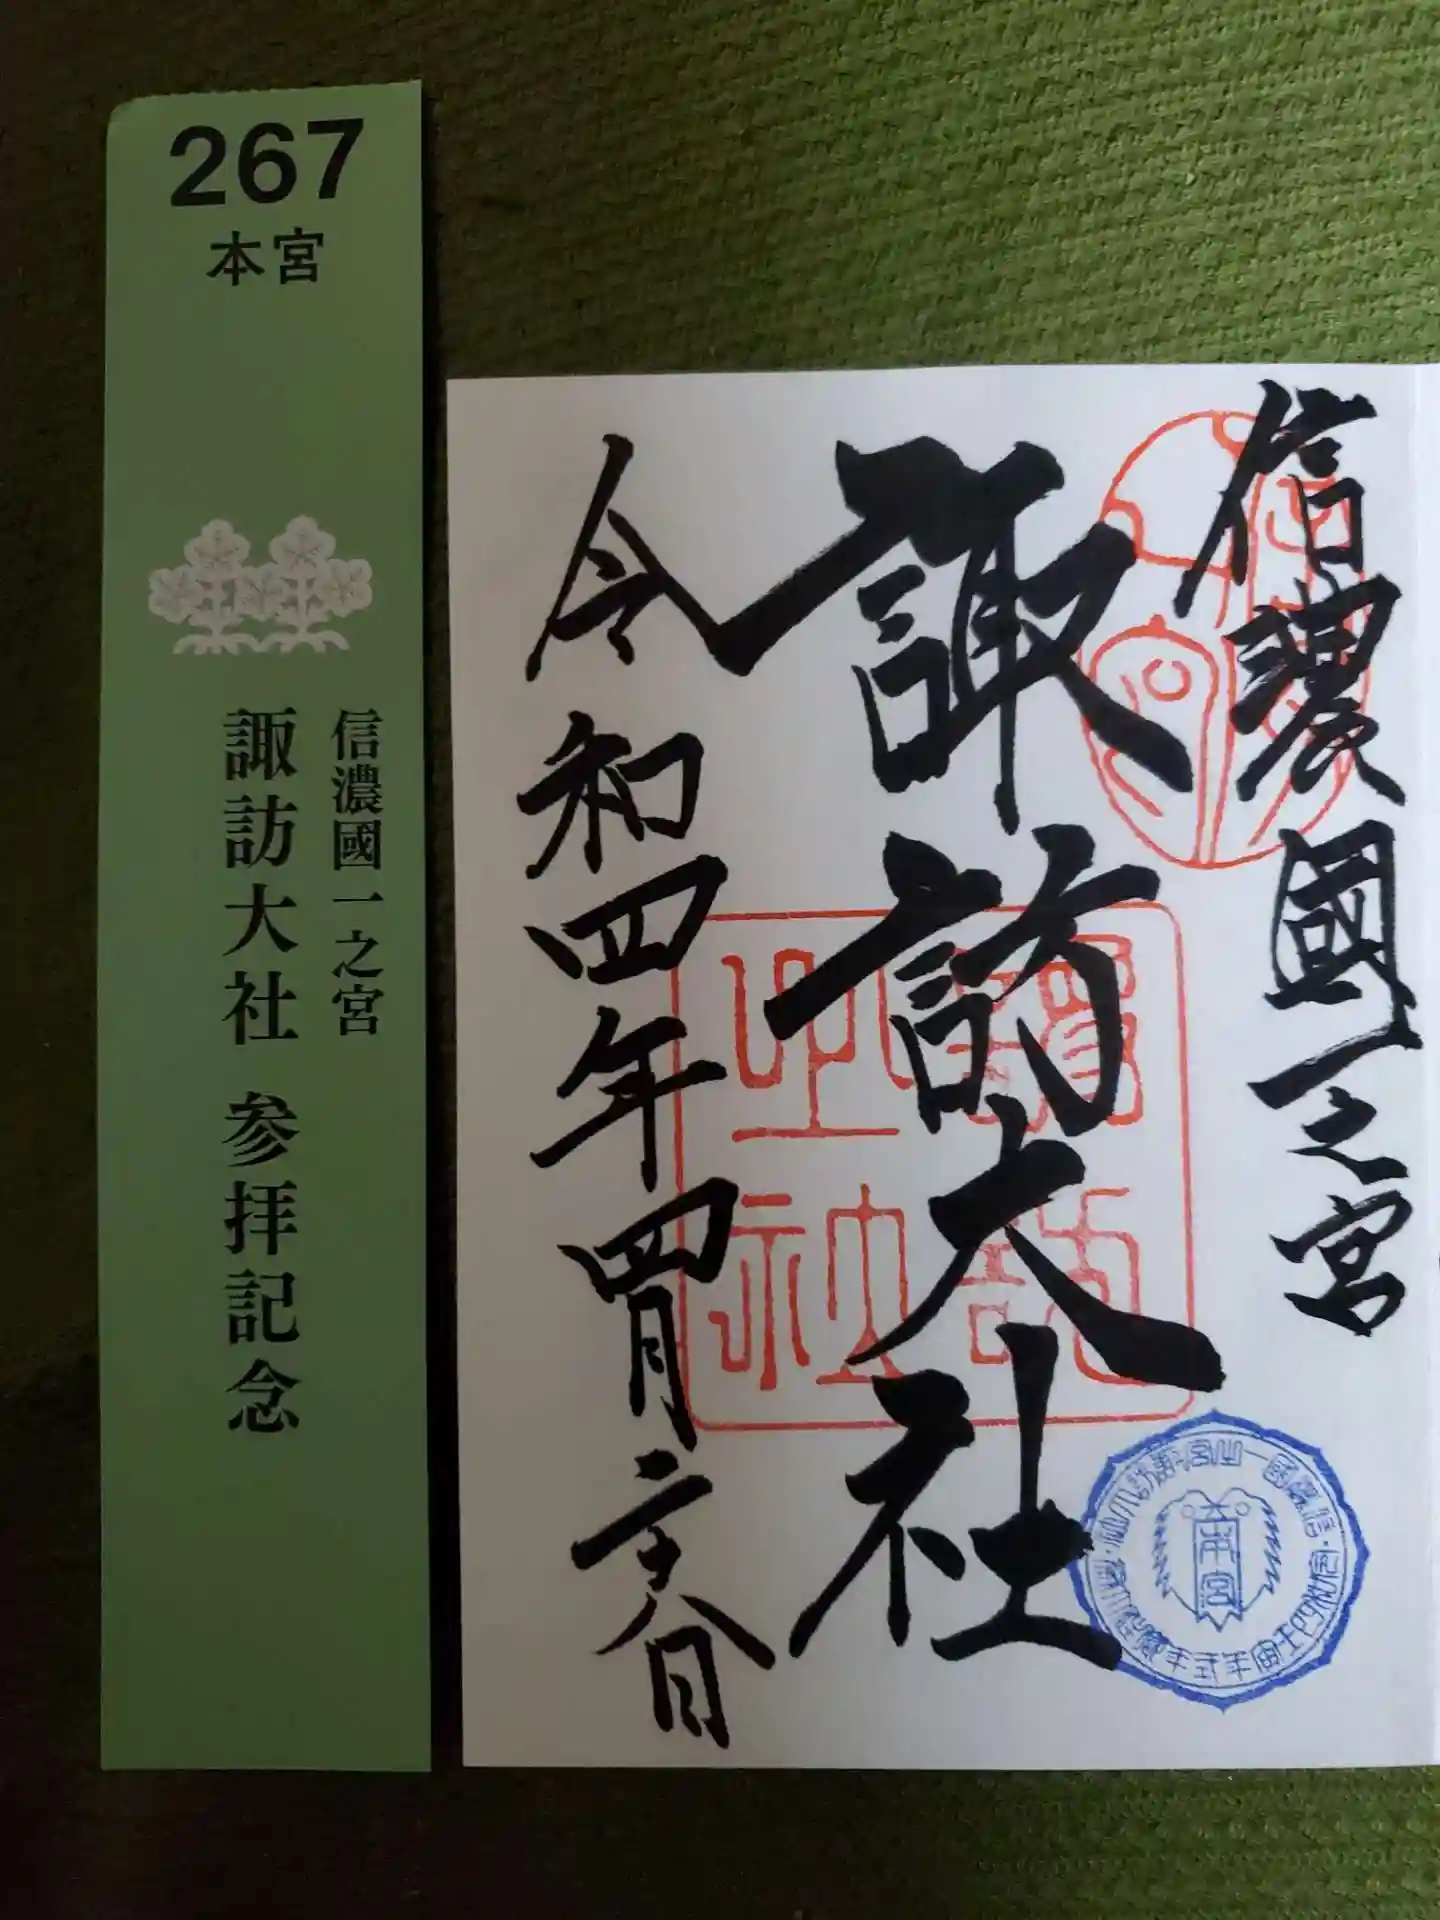 267
本宮
信濃國一之宮
諏訪大社 参拝記念
信濃國一之宮
諏訪大社
令和四年四月二十八日
諏訪
大社
本宮